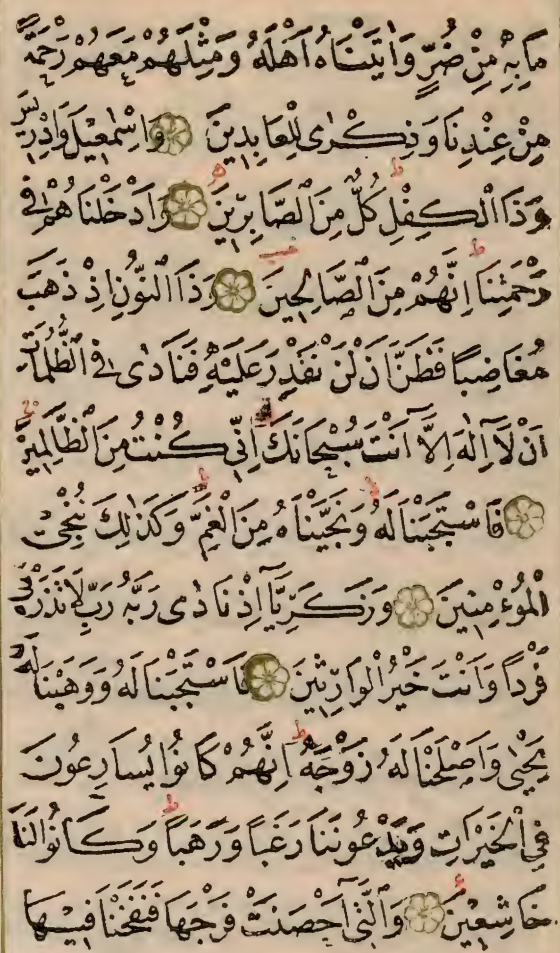 مَابِهِ مِنْ ضُرٍّ وَاٰتَيْنَاهُ اَهْلَهُ وَمِثْلَهُمْ مَعَهُمْ رَحْمَةً
مِنْ عِنْدِنَا وَذِكْرٰى لِلْعَابِدِينَ وَاِسْمٰعِيلَ وَاِدْرِيسَ
وَذَا الْكِفْلِ كُلٌّ مِنَ الصَّابِرِينَ وَاَدْخَلْنَاهُمْ فِي
رَحْمَتِنَا اِنَّهُمْ مِنَ الصَّالِحِينَ وَذَا النُّونِ اِذْ ذَهَبَ
مُغَاضِبًا فَظَنَّ اَنْ لَنْ نَقْدِرَ عَلَيْهِ فَنَادٰى فِي الظُّلُمَاتِ
اَنْ لَا اِلٰهَ اِلَّا اَنْتَ سُبْحَانَكَ اِنِّي كُنْتُ مِنَ الظَّالِمِينَ
فَاسْتَجَبْنَا لَهُ وَنَجَّيْنَاهُ مِنَ الْغَمِّ وَكَذٰلِكَ نُنْجِي
الْمُؤْمِنِينَ وَزَكَرِيَّا اِذْ نَادٰى رَبَّهُ رَبِّ لَا تَذَرْنِي
فَرْدًا وَاَنْتَ خَيْرُ الْوَارِثِينَ فَاسْتَجَبْنَا لَهُ وَوَهَبْنَا لَهُ
يَحْيٰى وَاَصْلَحْنَا لَهُ زَوْجَهُ اِنَّهُمْ كَانُوا يُسَارِعُونَ
فِي الْخَيْرَاتِ وَيَدْعُونَنَا رَغَبًا وَرَهَبًا وَكَانُوا لَنَا
خَاشِعِينَ وَالَّتِي اَحْصَنَتْ فَرْجَهَا فَنَفَخْنَا فِيهَا